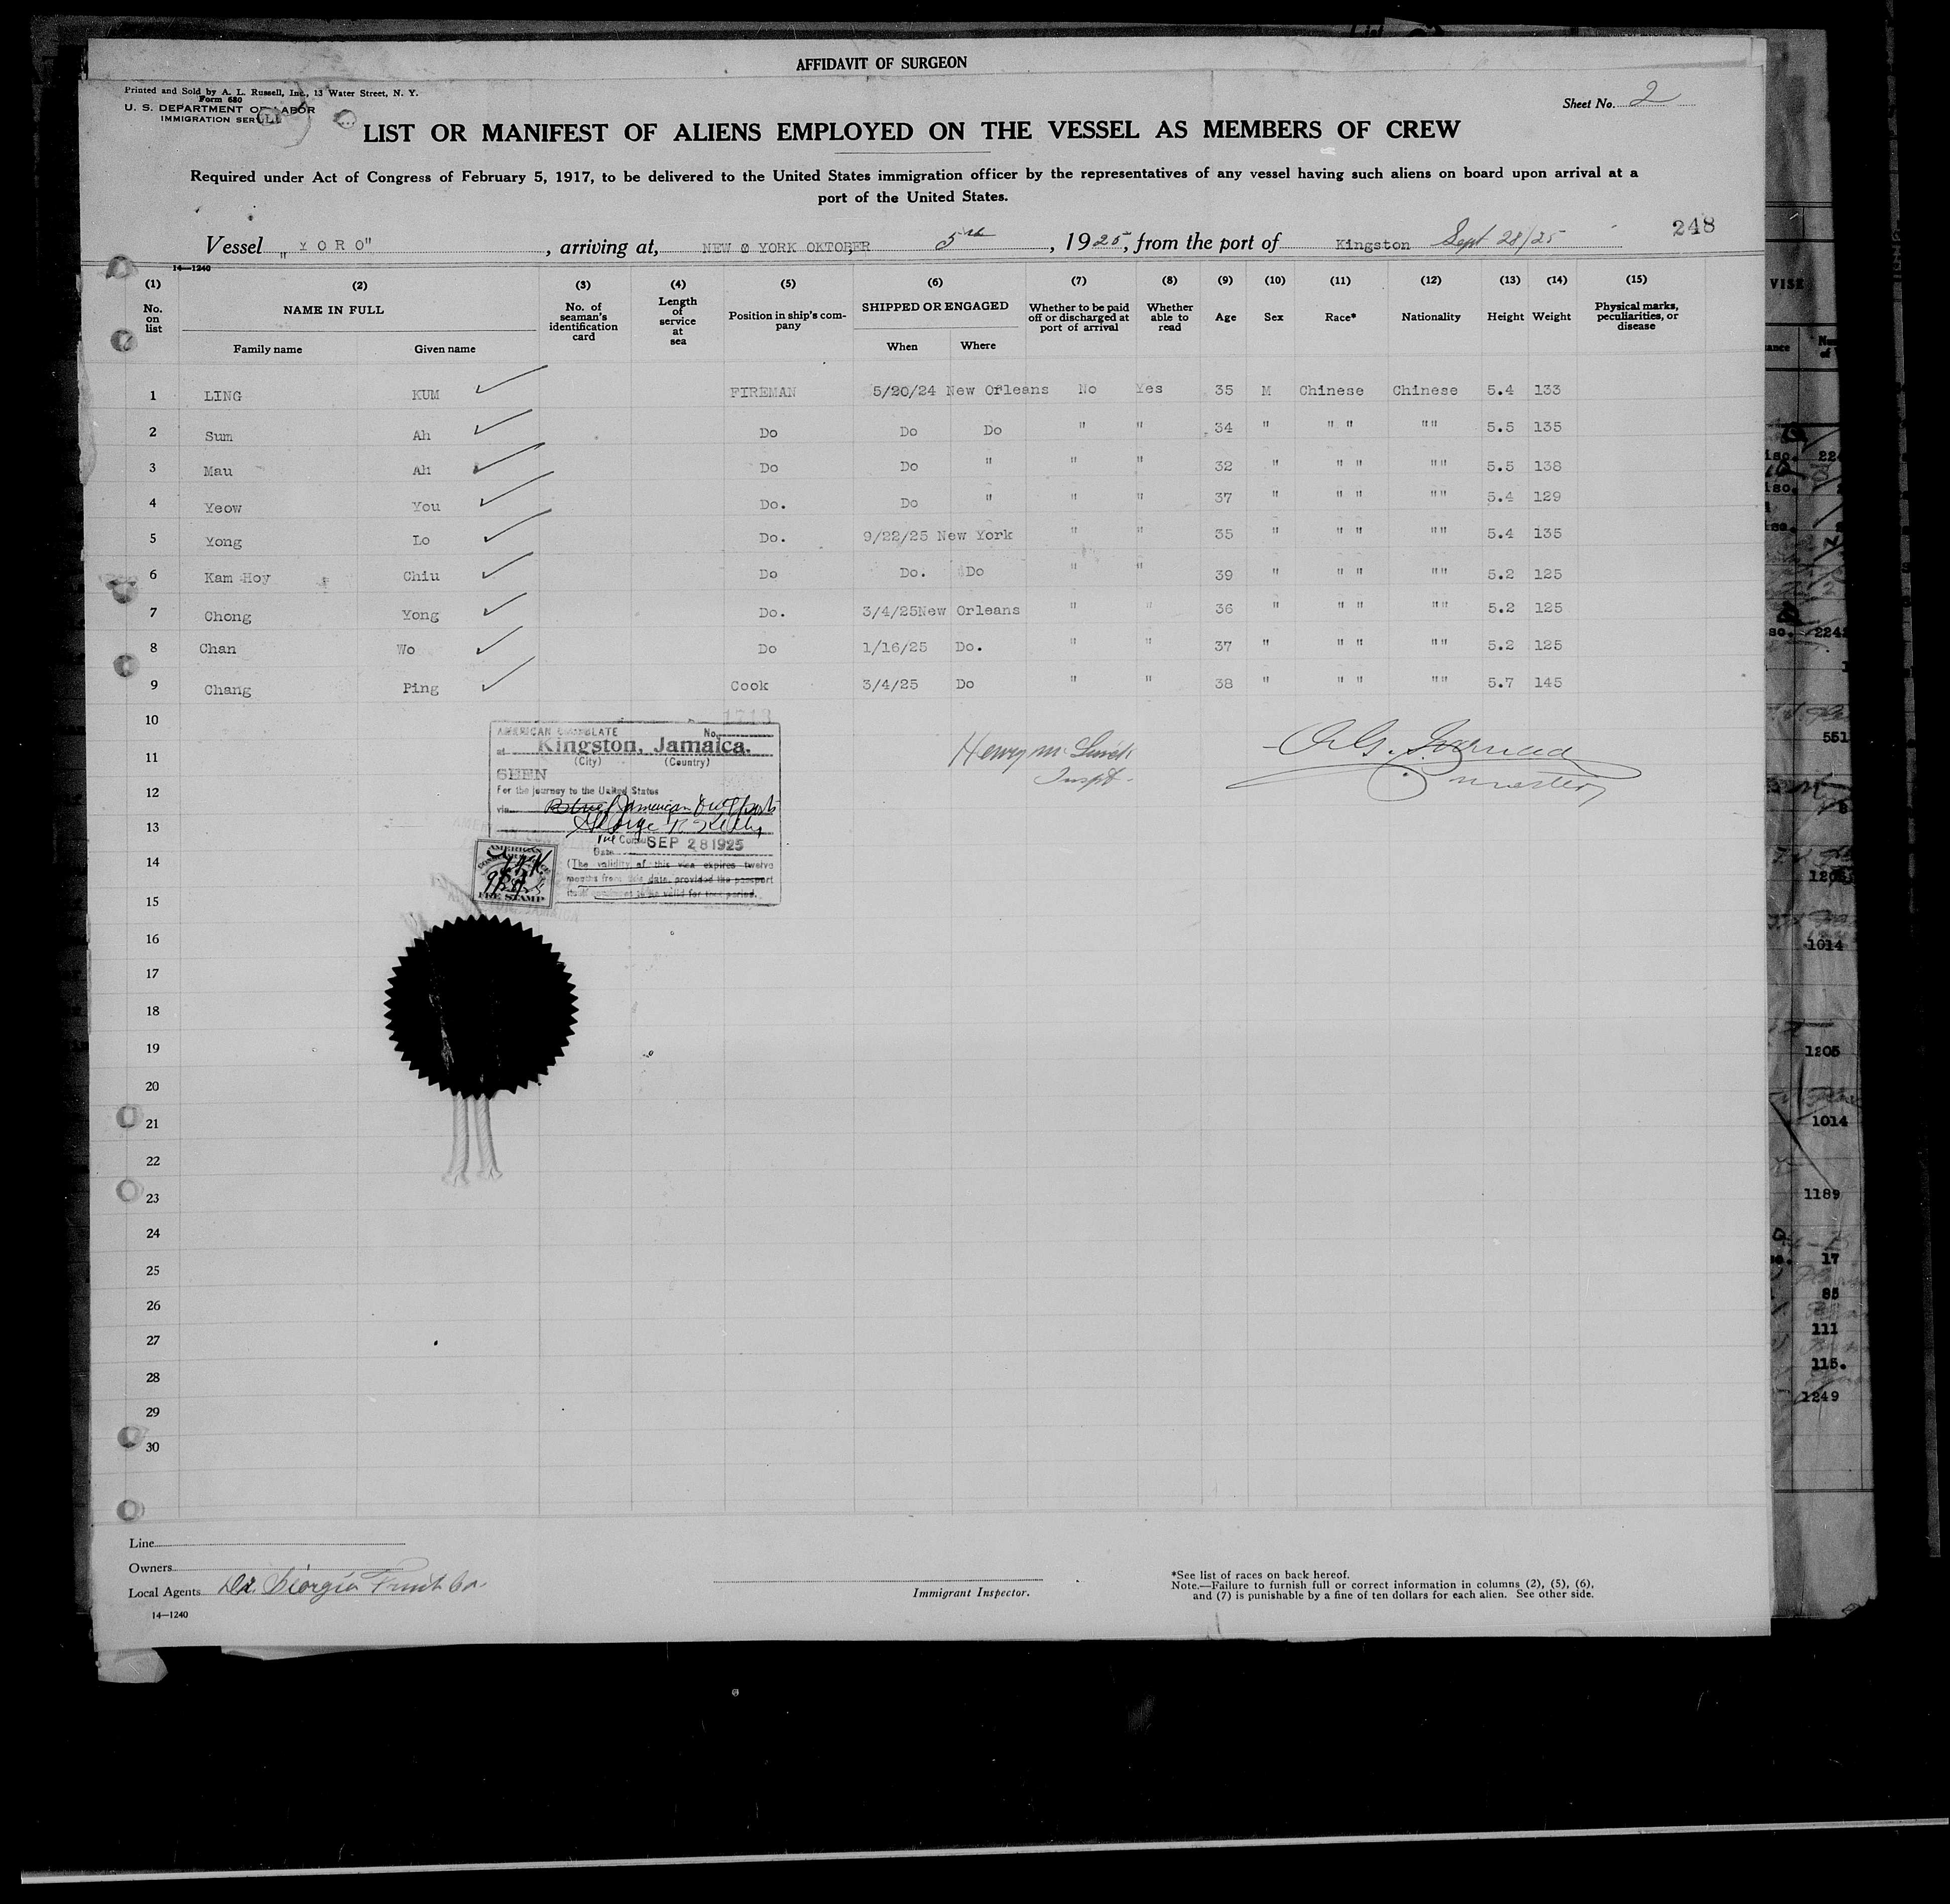 AFFIDAVIT OF SURGEON
Printed and Sold by A. L. Russell, Inc., 13 Water Street, N. Y.
Form 680
U. S. DEPARTMENT OF LABOR
IMMIGRATION SERVICE
Sheet No. 2
LIST OR MANIFEST OF ALIENS EMPLOYED ON THE VESSEL AS MEMBERS OF CREW
Required under Act of Congress of February 5, 1917, to be delivered to the United States immigration officer by the representatives of any vessel having such aliens on board upon arrival at a
port of the United States.
248
Vessel "YORO", arriving at, NEW YORK OKTOBER 5th, 1925, from the port of Kingston Sept 28/25
14—1240
(1) (2) (3) (4) (5) (6) (7) (8) (9) (10) (11) (12) (13) (14) (15)
No. on list NAME IN FULL Family name Given name No. of seaman's identification card Length of service at sea Position in ship's company SHIPPED OR ENGAGED When Where Whether to be paid off or discharged at port of arrival Whether able to read Age Sex Race* Nationality Height Weight Physical marks, peculiarities, or disease
1 LING KUM FIREMAN 5/20/24 New Orleans No Yes 35 M Chinese Chinese 5.4 133
2 Sum Ah Do Do Do " " 34 " " " "" 5.5 135
3 Mau Ah Do Do " " " 32 " " " "" 5.5 138
4 Yeow You Do. Do " " " 37 " " " "" 5.4 129
5 Yong Lo Do. 9/22/25 New York " " 35 " " " "" 5.4 135
6 Kam Hoy Chiu Do Do. Do " " 39 " " " "" 5.2 125
7 Chong Yong Do. 3/4/25 New Orleans " " 36 " " " "" 5.2 125
8 Chan Wo Do 1/16/25 Do. " " 37 " " " "" 5.2 125
9 Chang Ping Cook 3/4/25 Do " " 38 " " " "" 5.7 145
10
11
12
13
14
15
16
17
18
19
20
21
22
23
24
25
26
27
28
29
30
AMERICAN CONSULATE No.
at Kingston, Jamaica.
(City) (Country)
SEEN
For the journey to the United States
via
SEP 28 1925
Date
(The validity of this visa expires twelve
months from this date, provided the passport
valid for that period.
AMERICAN
FEE STAMP
Henry
Inspt.
Master
Line
Owners
Local Agents Di Giorgio Fruit Co.
14—1240
Immigrant Inspector.
*See list of races on back hereof.
Note.—Failure to furnish full or correct information in columns (2), (5), (6),
and (7) is punishable by a fine of ten dollars for each alien. See other side.
551
1014
1205
1014
1189
17
85
111
115.
1249